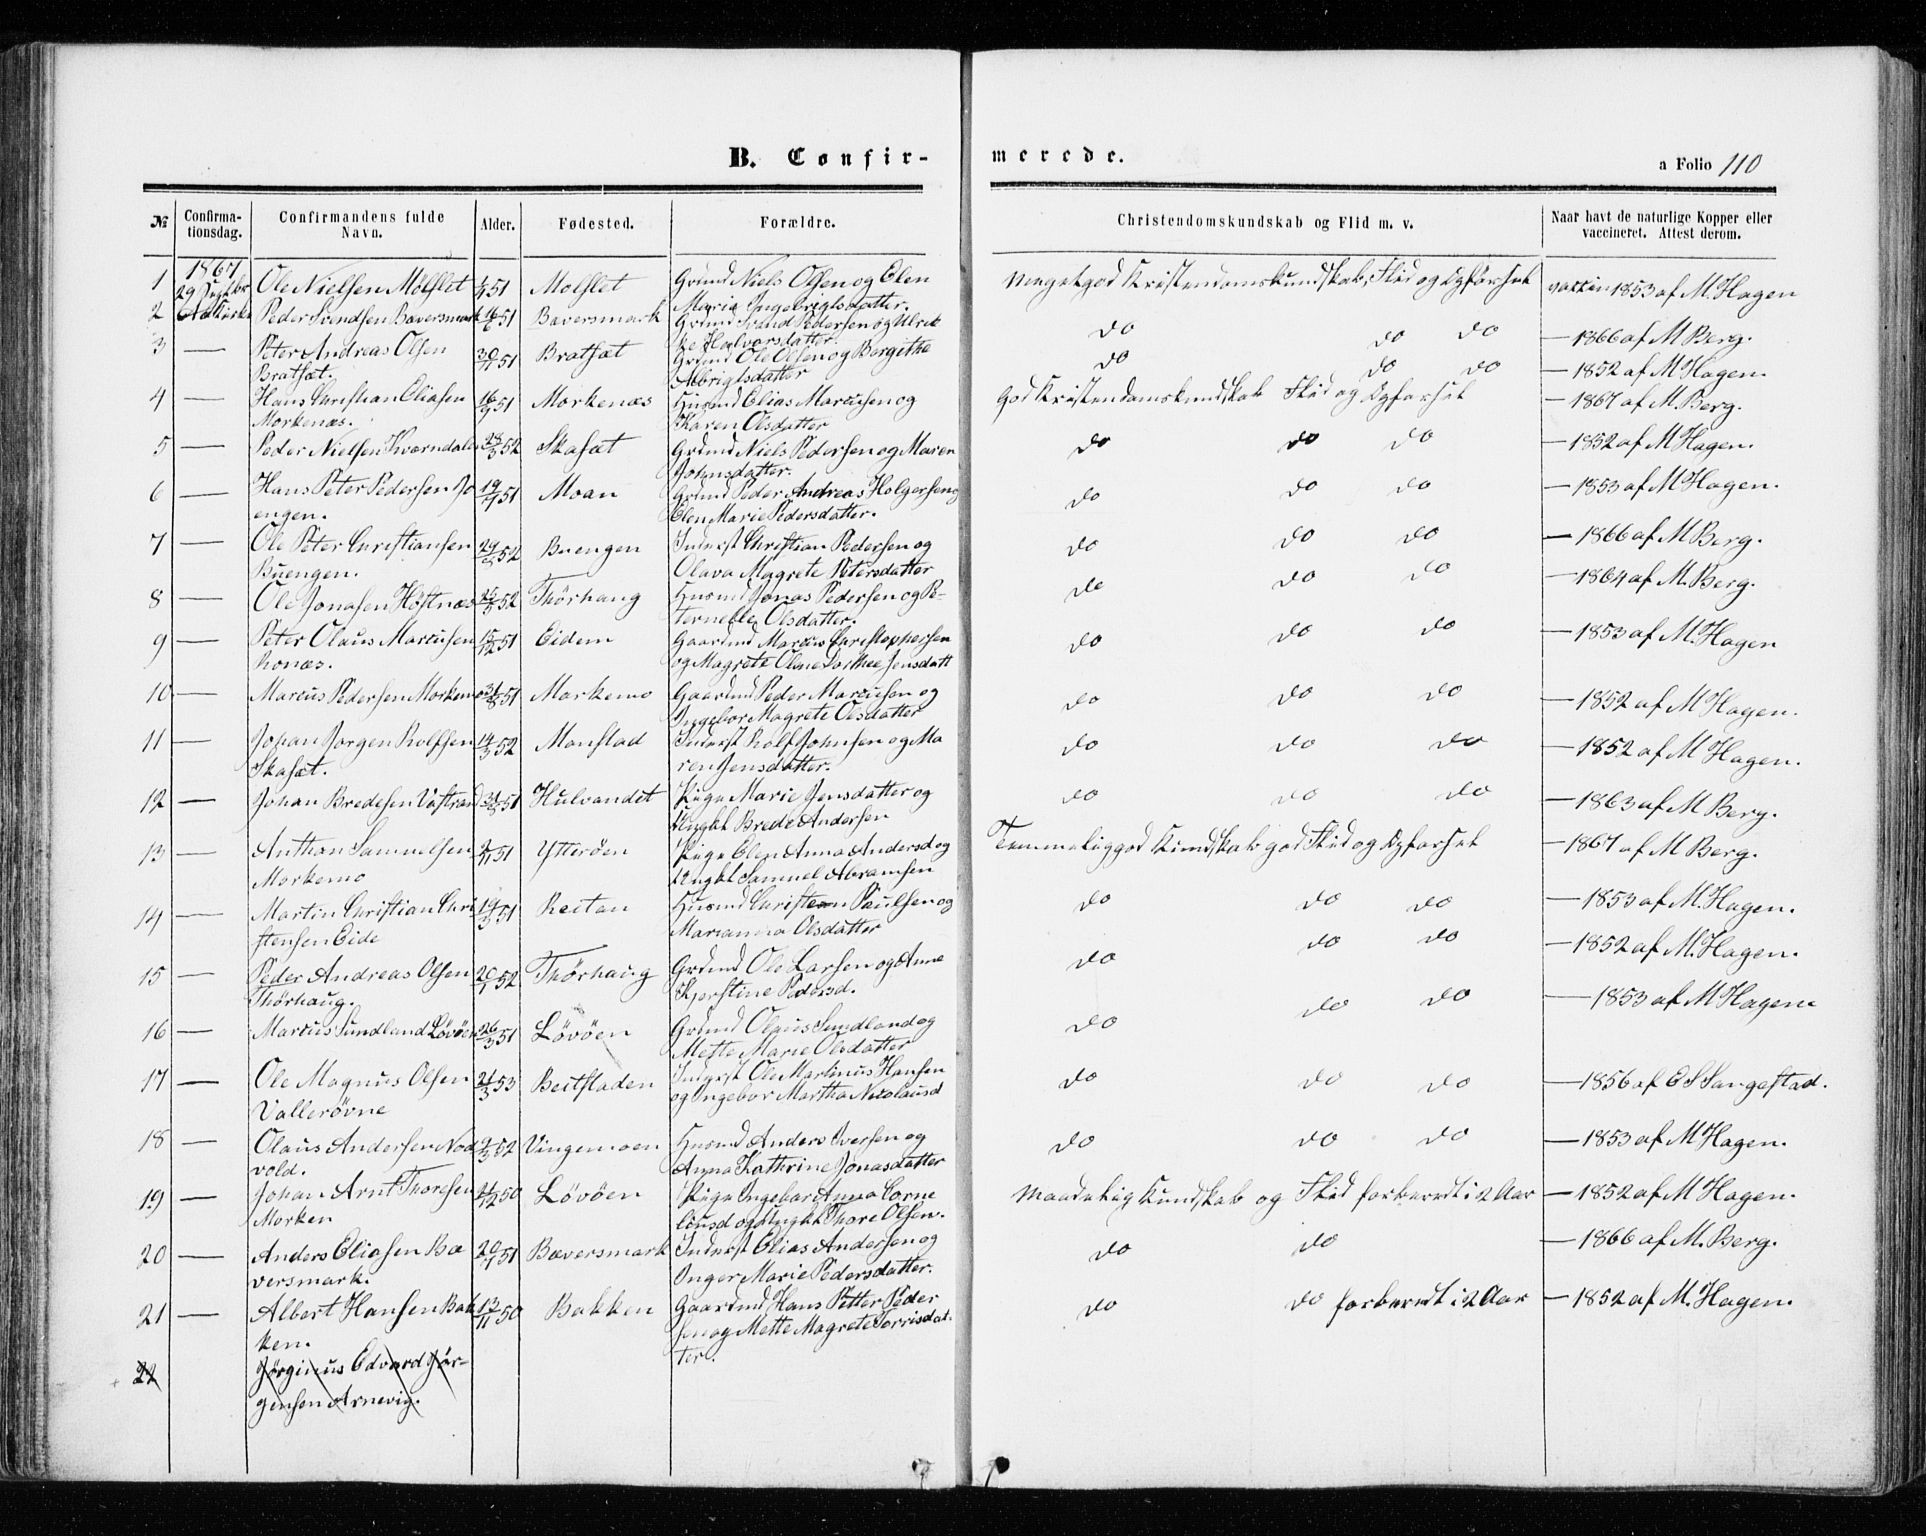 B. Confir-
merede.
a Folio 110
№
Confirma-
tionsdag.
Confirmandens fulde
Navn.
Alder.
Fødested.
Forældre.
Christendomskundskab og Flid m. v.
Naar havt de naturlige Kopper eller
vaccineret. Attest derom.
1867
1 29 Septbr Ole Nielsen Mølslet 51 Molslet Grdmd Niels Olsen og Elen Meget god Kristendomskundskab, Flid og Opførsel vaccin 1853 af M. Hagen
Marie Ingebrigtsdatter.
2 Peder Svendsen Bæversmark 16/6 51 Bæversmark Grdmd Svend Pedersen og Ulrik do do do — 1866 af M Berg.
ke Halvorsdatter.
3 — Peter Andreas Olsen 30/7 51 Bratsæt Grdmd Ole Olsen og Bergithe do do do — 1852 af M Hagen.
Bratsæt. Albrigtsdatter
4 — Hans Christian Eliasen 16/9 51 Morkenæs Husmd Elias Marcusen og God Kristendomskundskab Flid og Opførsel — 1867 af M. Berg.
Morkenæs. Karen Olsdatter
5 — Peder Nielsen Kværndalen 28/3 52 Skasæt Grdmd Niels Pedersen og Maren do do do — 1852 af M Hagen.
Johnsdatter.
6 — Hans Peter Pedersen Jo 19/7 51 Moan Grdmd Peder Andreas Holgersen og do do do — 1853 af M Hagen.
engen. Elen Marie Pedersdatter.
7 — Ole Peter Christiansen 52 Buengen Inderst Christian Pedersen og do do do — 1866 af M Berg.
Buengen. Olava Magrete Petersdatter
8 — Ole Jonasen Høstnæs 52 Thørhaug Husmd Jonas Pedersen og Pe- do do do — 1864 af M. Berg.
ternelle Olsdatter.
9 — Peter Olaus Marcusen 15/12 51 Eidem Gaardmd Marcus Christophersen do do do — 1853 af M. Hagen
honæs. og Magrete Oline Dorthee Jensdatt
10 — Marcus Pedersen Morkemo 31/8 51 Morkemo Gaardmd Peder Marcusen og do do do — 1852 af M Hagen.
Ingebor Magrete Olsdatter
11 — Johan Jørgen Rolfsen 14/3 52 Monstad Inderst Rolf Johnsen og Ma do do do — 1852 af M Hagen.
Skasæt. ren Jensdatter.
12 — Johan Bredesen Vastrand 31/8 51 Hulvandet Pige Marie Jensdatter og do do do — 1863 af M Berg.
Ungkl Brede Andersen
13 — Anthon Samuelsen 51 Ytterøen Pige Elen Anna Andersd og Temmelig god Kundskab god Flid og Opførsel — 1867 af M Berg.
Morkemo Ungkl Samuel Abramsen
14 — Martin Christian Chri 19/3 51 Reitan Husmd Christen Paulsen og do do do — 1853 af M. Hagen.
stensen Eide Marianna Olsdatter
15 — Peder Andreas Olsen 20/1 52 Thørhaug Grdmd Ole Larsen og Anne do do do — 1852 af M. Hagen.
Thørhaug. Kjerstine Pedersd.
16 — Marcus Sundland Løvøen 26/3 51 Løvøen Grdmd Olaus Sundland og do do do — 1853 af M Hagen
Mette Marie Olsdatter
17 — Ole Magnus Olsen 21/3 53 Beitstaden Inderst Ole Martinus Hansen do do do — 1856 af E S Sangestad.
Vallerøvne og Ingebor Martha Nicolausd
18 — Olaus Andersen Nod 2/3 52 Vingemoen Husmd Anders Iversen og do do do — 1853 af M Hagen.
vold. Anna Kathrine Jonasdatter
19 — Johan Arnt Thoresen 21/12 50 Løvøen Pige Ingebor Anna Corne Maadelig Kundskab og Flid forberedt i 2 Aar — 1852 af M Hagen.
Morken liusd og Ungkl Thore Olsen.
20 — Anders Eliasen Bæ 20/7 51 Bæversmark Inderst Elias Andersen og do do — 1866 af M. Berg.
versmark. Inger Marie Pedersdatter.
21 — Albert Hansen Bak 13/11 50 Bakken Gaardmd Hans Petter Peder do do forberedt i 2 Aar — 1852 af M. Hagen.
ken. sen og Mette Magrete Torrisdat-
ter.
22 Jørginus Edvard Jør-
gensen Arnevig.